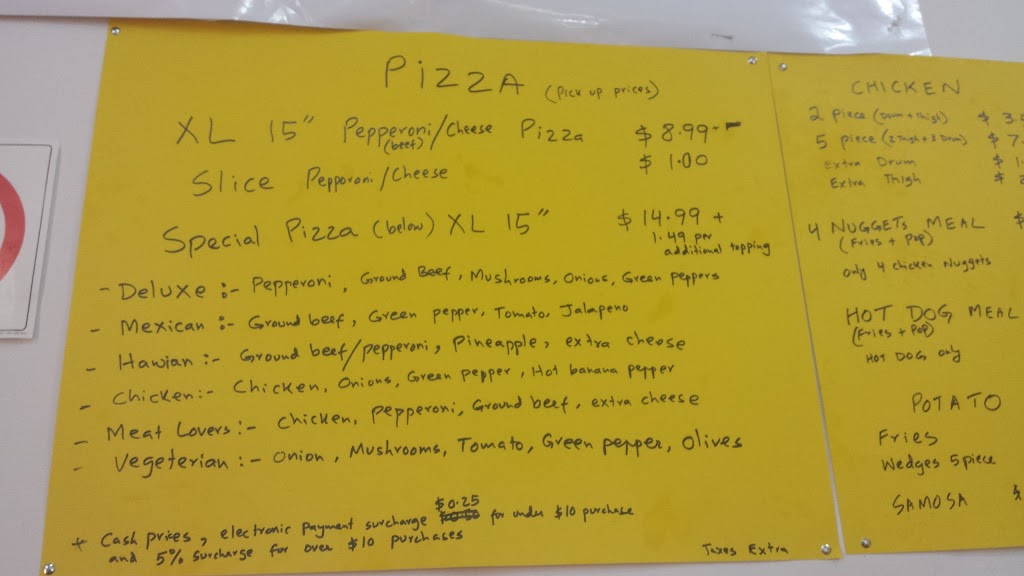 PIZZA (Pick up prices)
XL 15" Pepperoni/Cheese Pizza $8.99
(beef)
Slice Pepporoni/Cheese $1.00
Special Pizza (below) XL 15" $14.99 +
1.49 per
additional topping
- Deluxe :- Pepperoni, Ground Beef, Mushrooms, Onions, Green peppers
- Mexican :- Ground beef, Green pepper, Tomato, Jalapeno
- Hawian :- Ground beef/pepperoni, Pineapple, extra cheese
- Chicken :- Chicken, Onions, Green pepper, Hot banana pepper
- Meat Lovers :- Chicken, pepperoni, Ground beef, extra cheese
- Vegeterian :- Onion, Mushrooms, Tomato, Green pepper, Olives
$0.25
+ Cash prices, electronic payment surcharge $0.50 for under $10 purchase
and 5% surcharge for over $10 purchases
Taxes Extra
CHICKEN
2 piece (Drum + thigh) $3.
5 piece (2 Thigh + 3 Drum) $7.
Extra Drum $1.
Extra Thigh $
4 NUGGETS MEAL $
(Fries + Pop)
only 4 chicken Nuggets
HOT DOG MEAL
(Fries + Pop)
HOT DOG only
POTATO
Fries
Wedges 5 piece
SAMOSA $